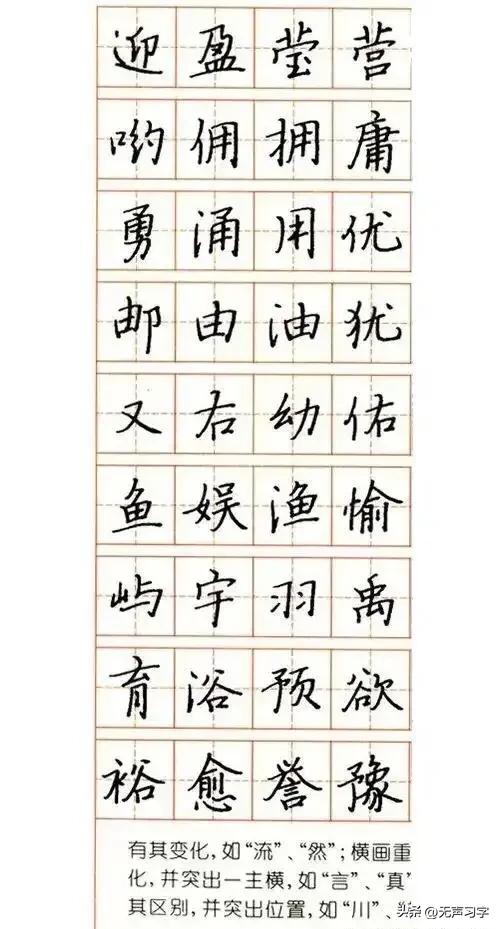 迎盈莹营
哟佣拥庸
勇涌用优
邮由油犹
又右幼佑
鱼娱渔愉
屿宇羽禹
育浴预欲
裕愈誉豫
有其变化,如“流”、“然”;横画重
化,并突出一主横,如“言”、“真”
其区别,并突出位置,如“川”、
头条@无声习字